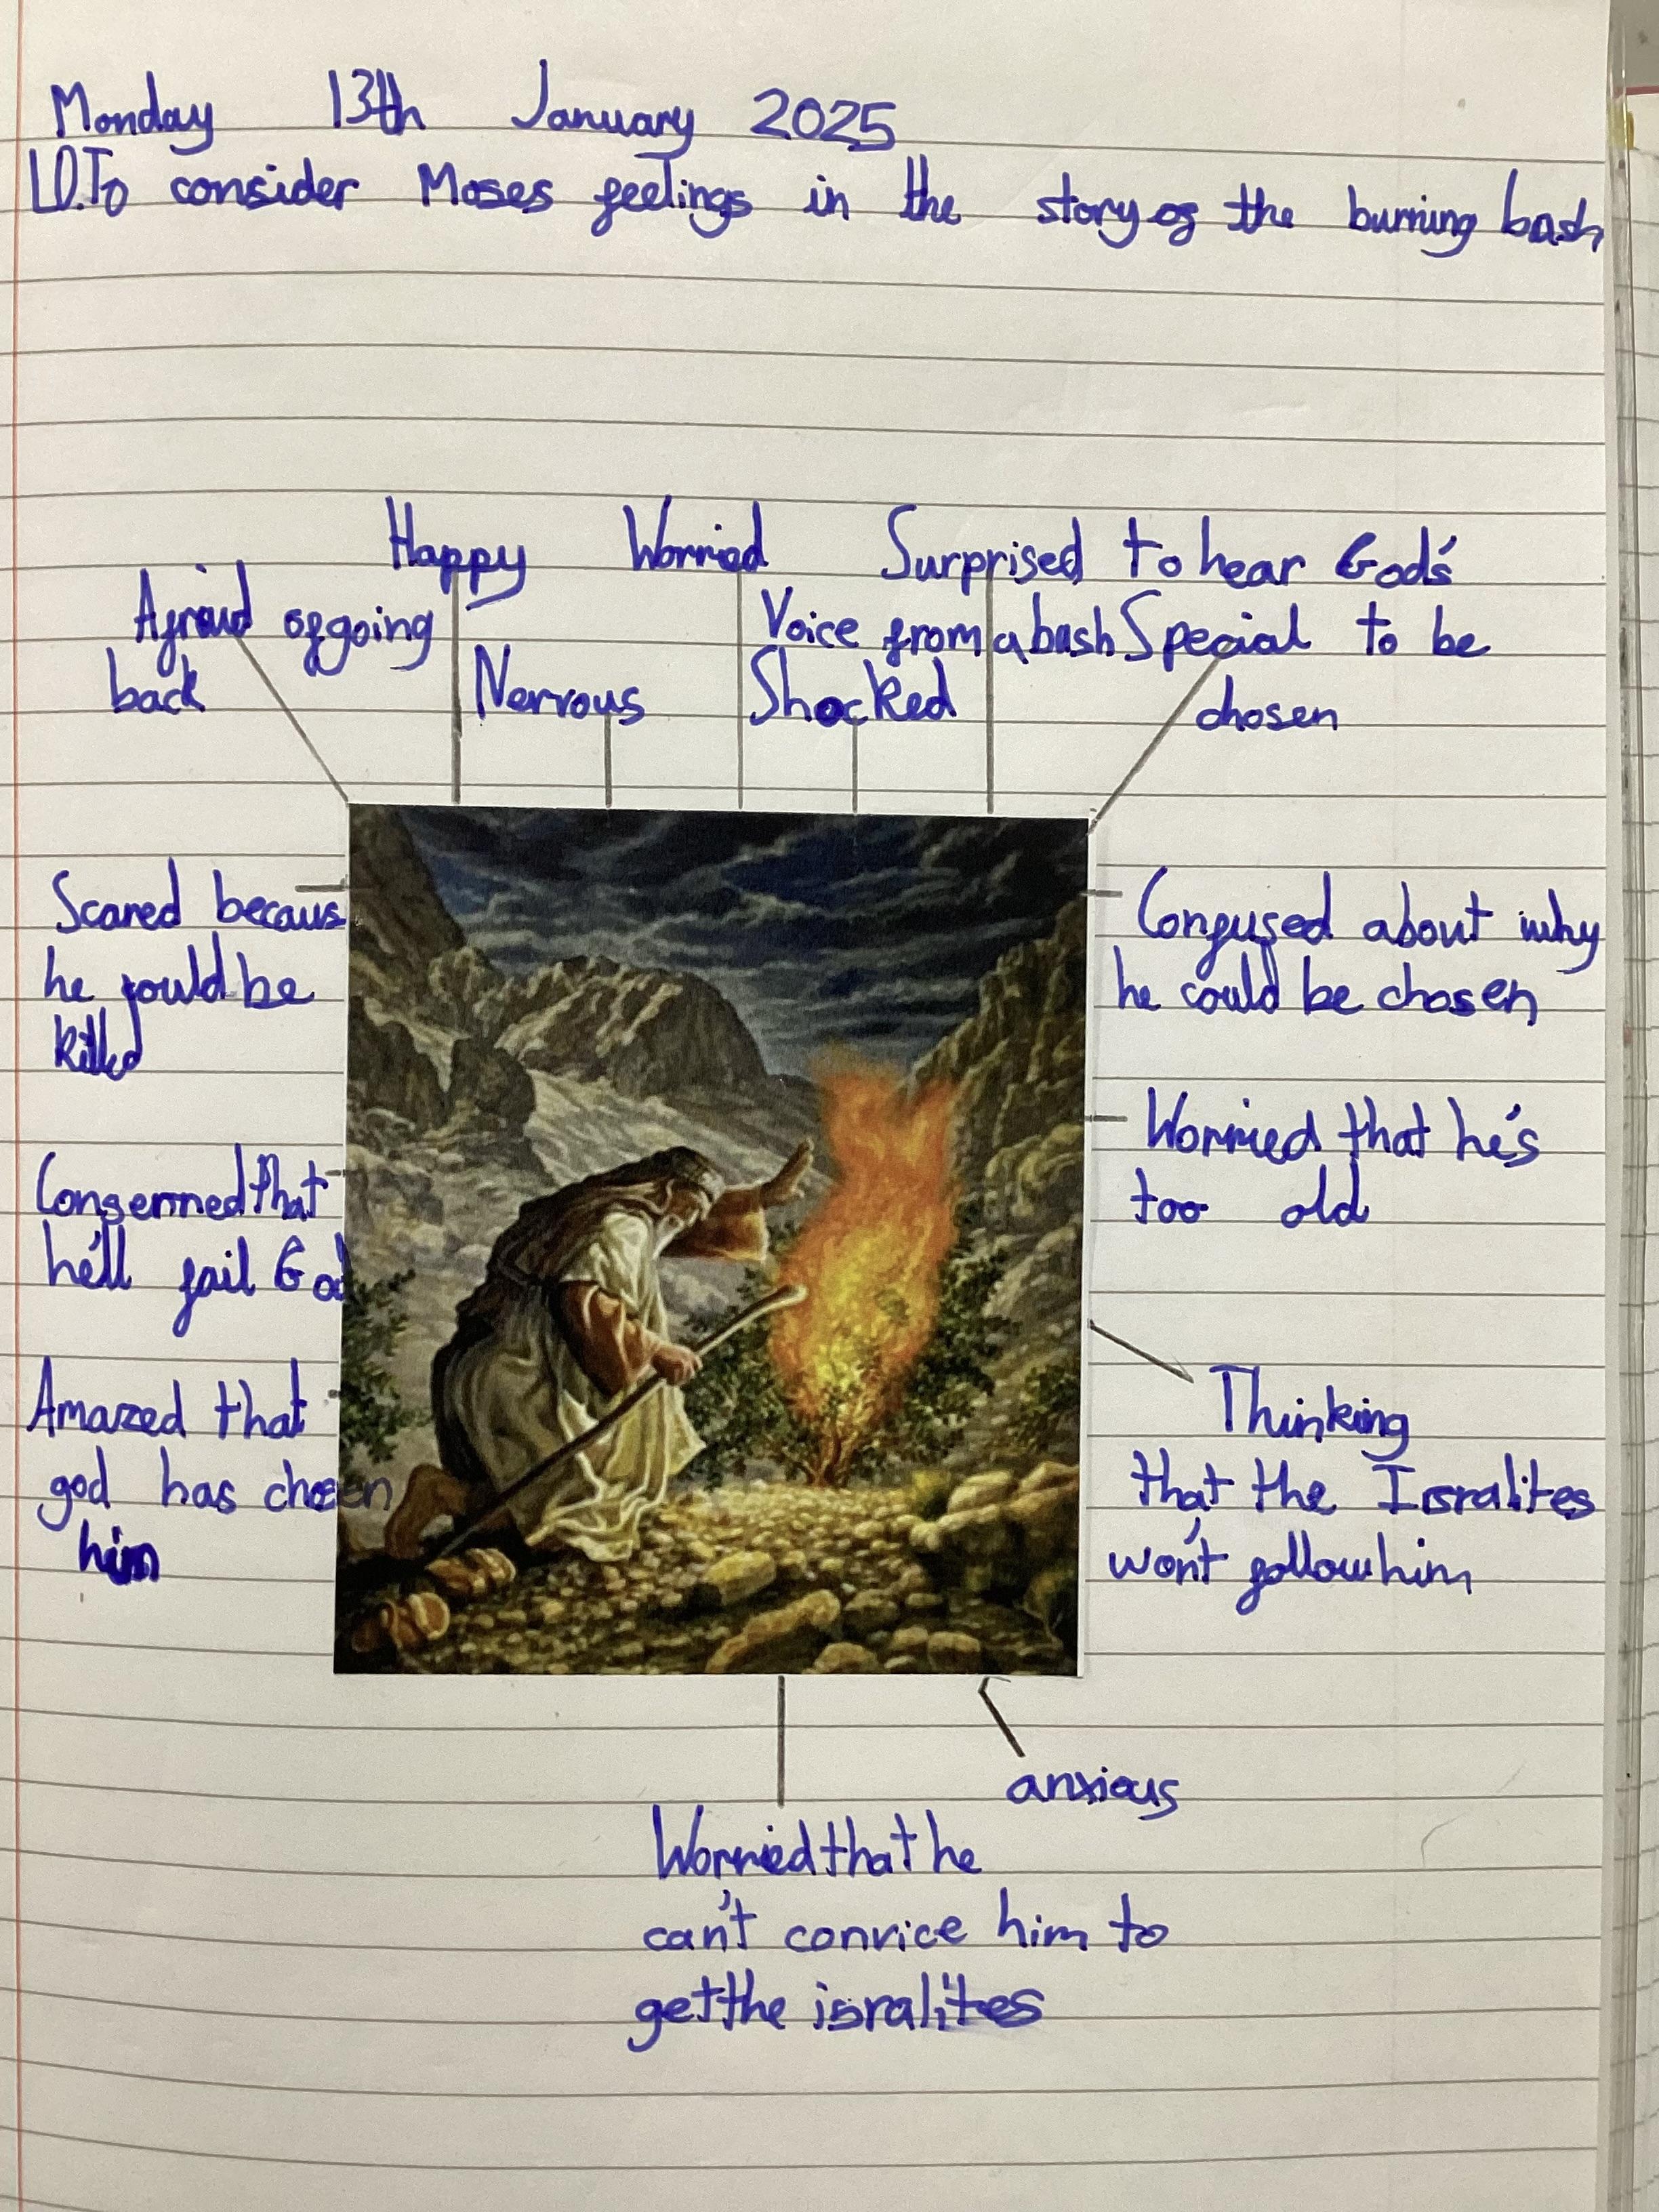 Monday 13th January 2025
LO.To consider Moses feelings in the story of the burning bush
Happy
Worried
Surprised to hear God's
Voice from a bush
Afraid of going
back
Nervous
Shocked
Special to be
chosen
Scared becaus
he would be
killed
Confused about why
he could be chosen
Worried that he's
too old
Conserned that
he'll fail God
Amazed that
god has chosen
him
Thinking
that the Isralites
won't follow him
anxious
Worried that he
can't convice him to
get the isralites